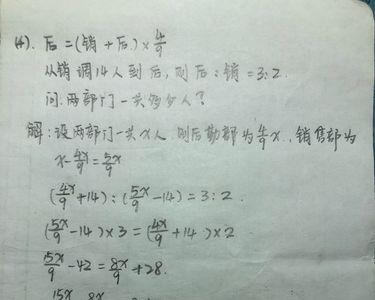 (4). 后=(销+后)×4/9
从销调14人到后,则后:销=3:2.
问:两部门一共多少人?
解:设两部门一共x人 则后勤部为4/9x.,销售部为
x-4x/9=5x/9
(4x/9+14):(5x/9-14)=3:2.
(5x/9-14)×3=(4x/9+14)×2
15x/9-42=8x/9+28.
15x 8x